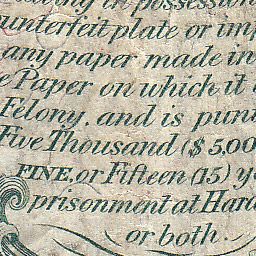 in possession
counterfeit plate or imp
any paper made in
Paper on which it
Felony, and is pun
Five Thousand ($5,00
FINE, or Fifteen (15) y
prisonment at Hard
or both.